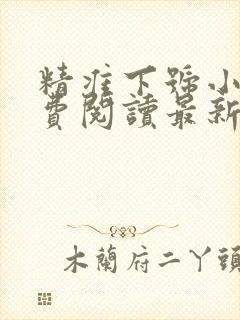 精准下號小
費閱讀最新
木蘭府二丫頭